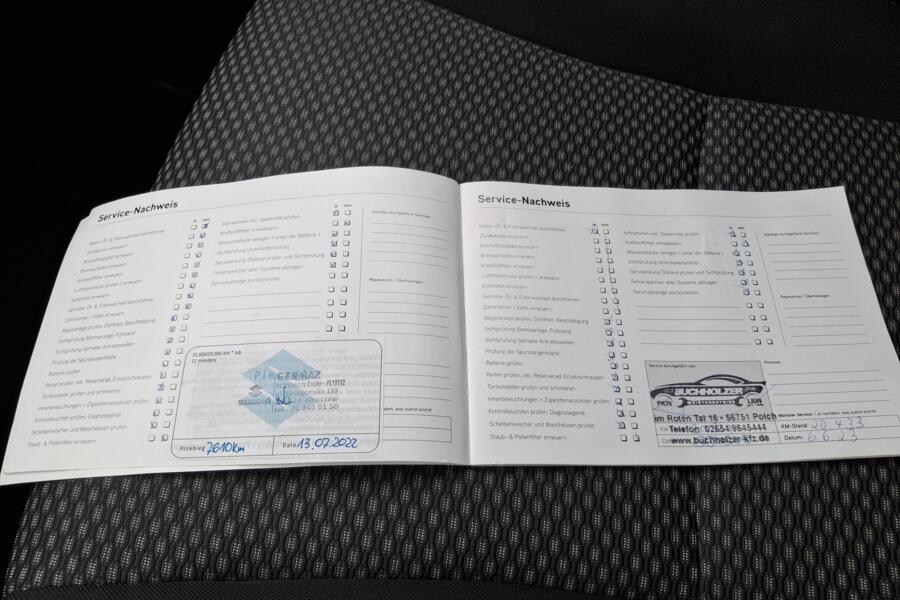 Service-Nachweis
Motor-Öl- & Filterwechsel durchführen
Zündkerzen erneuern
Bremsflüssigkeit erneuern
Bremsscheibe erneuern
Kraftstofffilter erneuern
Luftfiltereinsatz prüfen / erneuern
Kühlmittel erneuern
Getriebe-Öl- & Filterwechsel durchführen
Zahnriemen / Kette erneuern
Abgasanlage prüfen, Dichtheit, Beschädigung
Sichtprüfung Bremsanlage, Füllstand
Sichtprüfung Getriebe Antriebswellen
Prüfung der Spurstangenköpfe
Batterie prüfen
Reifen prüfen inkl. Reserverad, Ersatzschrauben
Türfeststeller prüfen und schmieren
Innenbeleuchtungen + Zigarettenanzünder prüfen
Kontrollleuchten prüfen, Diagnosegerät
Scheibenwischer und Waschdüsen prüfen
Staub- & Pollenfilter erneuern
Keilrahmen inkl. Spannrolle prüfen
Kraftstofffilter entwässern
Wasserabläufe reinigen ( unter der Batterie )
Sichtprüfung Unterbodenschutz
Servolenkung Ölstand prüfen und Sichtprüfung
Fehlerspeicher aller Systeme abfragen
Serviceanzeige zurücksetzen
Sonstige durchgeführte Services:
Reparaturen / Überholungen:
15.000/20.000 km * lub
12 miesięcy
GERMAZ
SUZUKI
Przebieg 7610km
Data 13.07.2022
Service-Nachweis
Motor-Öl- & Filterwechsel durchführen
Zündkerzen erneuern
Bremsflüssigkeit erneuern
Bremsscheibe erneuern
Kraftstofffilter erneuern
Luftfiltereinsatz prüfen / erneuern
Kühlmittel erneuern
Getriebe-Öl- & Filterwechsel durchführen
Zahnriemen / Kette erneuern
Abgasanlage prüfen, Dichtheit, Beschädigung
Sichtprüfung Bremsanlage, Füllstand
Sichtprüfung Getriebe Antriebswellen
Prüfung der Spurstangenköpfe
Batterie prüfen
Reifen prüfen inkl. Reserverad, Ersatzschrauben
Türfeststeller prüfen und schmieren
Innenbeleuchtungen + Zigarettenanzünder prüfen
Kontrollleuchten prüfen, Diagnosegerät
Scheibenwischer und Waschdüsen prüfen
Staub- & Pollenfilter erneuern
Keilrahmen inkl. Spannrolle prüfen
Kraftstofffilter entwässern
Wasserabläufe reinigen ( unter der Batterie )
Sichtprüfung Unterbodenschutz
Servolenkung Ölstand prüfen und Sichtprüfung
Fehlerspeicher aller Systeme abfragen
Serviceanzeige zurücksetzen
Sonstige durchgeführte Services:
Reparaturen / Überholungen:
Service durchgeführt von:
Hinweise:
BUCHHOLZER
PKW LKW
am Roten Tal 16 • 56751 Polch
Telefon: 02654.9645444
www.buchholzer-kfz.de
Nächster Service: je nachdem, was zuerst eintritt
KM-Stand: 20.433
Datum: 6.6.23